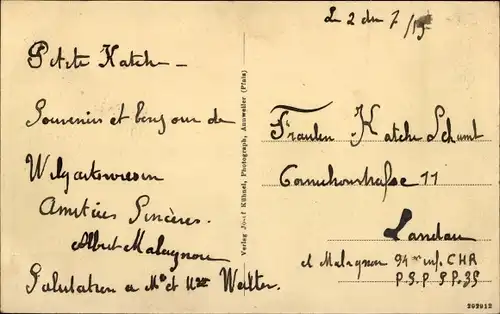 Le 2 du 7/19
Petite Katch –
Souvenirs et bonjour de
Wilgartswiesen
Amitiés Sincères.
Albert Malagnou
Salutation a Mr et Mme Walter.
Verlag Josef Kühnel, Photograph, Annweiler (Pfalz)
Fraulen Katch Schmt
11
Landau
Malagnou 94 inf. CHR
P.S.P
202912